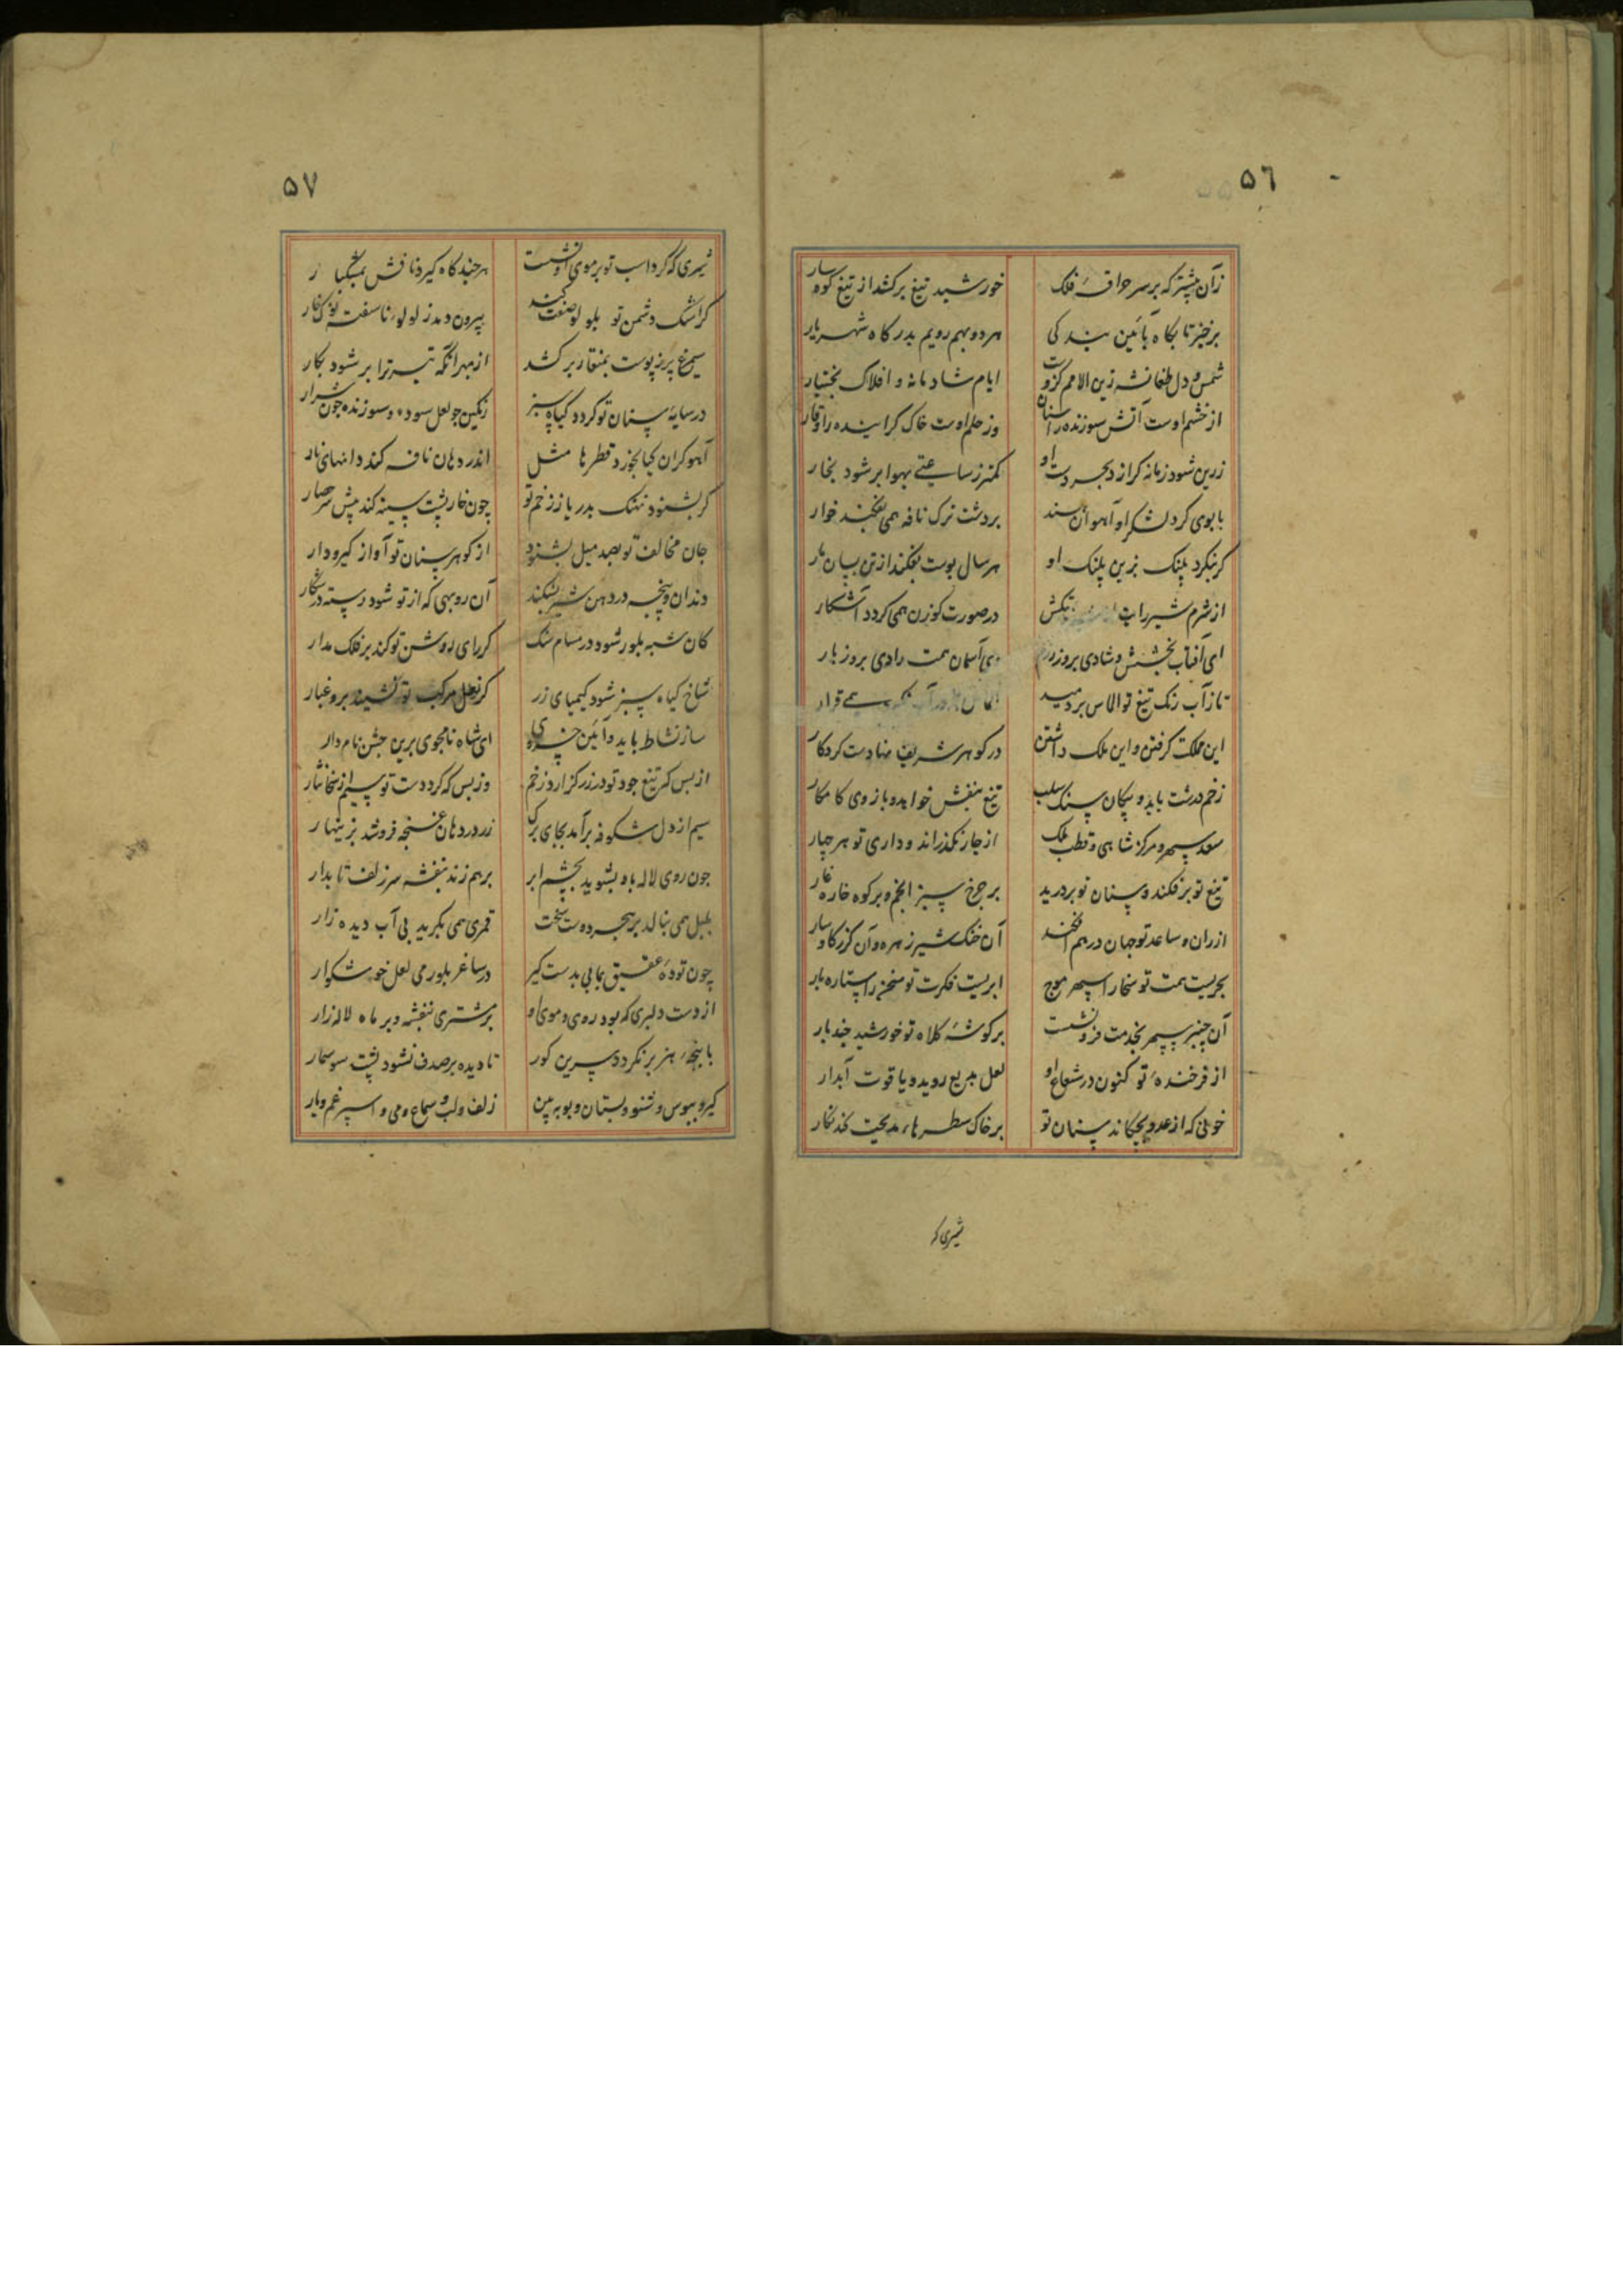 ٥٦
زآن پیشتر که بر سر حراقهٔ فلک خورشید تیغ برکشد از تیغ کوه سار
برخیز تا بکاه بآئین بندکی هر دو بهم رویم بدرکاه شهریار
شمس دول طغانشه زین الامم کزوست ایام شادمانه و افلاک بختیار
از خشم اوست آتش سوزنده را سنان وز حلم اوست خاک کراینده را وقار
زرین شود زمانه کر از بحر دست او کمتر ز ساعتی بهوا بر شود بخار
با بوی کرد لشکر او آهوان سند بر دشت ترک نافه همی بفکنند خوار
کر بنکرد پلنک بزین پلنک او هر سال پوست بفکند از تن بسان مار
از شرم شیر رایت در صورت کوزن همی کردد آشکار
ای آفتاب بخشش و شادی بروز بزم وی آسمان همت رادی بروز بار
تا ز آب رنک تیغ تو الماس بردمید الماس همی قرار
این مملکت کرفتن و این ملک داشتن در کوهر شریف نهادست کردکار
زخم درشت باید و پیکان سنک سلب تیغ بنفش خواهد و بازوی کامکار
سعد سپهر و مرکز شاهی و قطب ملک از چار نکذراند و داری تو هر چهار
تیغ تو برفکند و سنان تو بردرید بر چرخ سبز انجم و بر کوه خاره غار
از ران و ساعد تو جهان در هم افکند آن خنک شیر زهره و آن کرز کاوسار
بحریست همت تو سخا را سپهر موج ابریست فکرت تو سخن را ستاره بار
آن چنبر سپهر بخدمت فرونشست بر کوشهٔ کلاه تو خورشید چند بار
از فر خندهٔ تو کنون در شعاع او لعل بدیع روید و یاقوت آبدار
خونی که از عدو بچکاند سنان تو بر خاک سطرهاء مدیحت کند نکار
شیری که
٥٧
شیری که کرد اسب تو بر موی او نشست هر چند کاه کیرد نافش بمشکبار
کر اشک دشمن تو بلولو صفت کنند بیرون دمد ز لولوء ناسفته نوک خار
سیمرغ پر ز پوست بمنقار برکشد از بهر آنکه تیر ترا بر شود بکار
در سایهٔ سنان تو کردد کیاه سبز رنکین چو لعل سوده و سوزنده چون شرار
آهو کر آن کیا بخورد قطرها مثل اندر دهان نافه کند دانهای نار
کر بشنود نهنک بدریا ز زخم تو چون خارپشت سینه کند پیش سر حصار
جان مخالف تو بصد میل بشنود از کوهر سنان تو آواز کیر و دار
دندان و پنجه در دهن شیر بشکند آن روبهی که از تو شود رسته در شکار
کان شبه بلور شود در مسام سنک کر رای روشن تو کند بر فلک مدار
شاخ کیاه سبز شود کیمیای زر کر نعل مرکب تو نشیند برو غبار
ساز نشاط باید و آئین خسروی ای شاه نامجوی برین جشن نامدار
از بس که تیغ جود تو در زر کزارد زخم وز بس که کرد دست تو سیم از سخا نثار
سیم از دل شکوفه برآمد بجای برک زر در دهان غنچه فروشد بزینهار
چون روی لاله باد بشوید بچشم ابر بر هم زند بنفشه سر زلف تابدار
بلبل همی بنالد بر هجر دوست سخت قمری همی بکرید بی آب دیده زار
چون تودهٔ عقیق بمانی بدست کیر در ساغر بلور می لعل خوشکوار
از دست دلبری که بود روی و موی او بر مشتری بنفشه و بر ماه لاله زار
با پنجهٔ هزبر نکردد سرین کور تا دیده بر صدف نشود پشت سوسمار
کیر و ببوس و بشنو و بستان و بو ببین زلف و لب و سماع و می و اسپرغم و یار